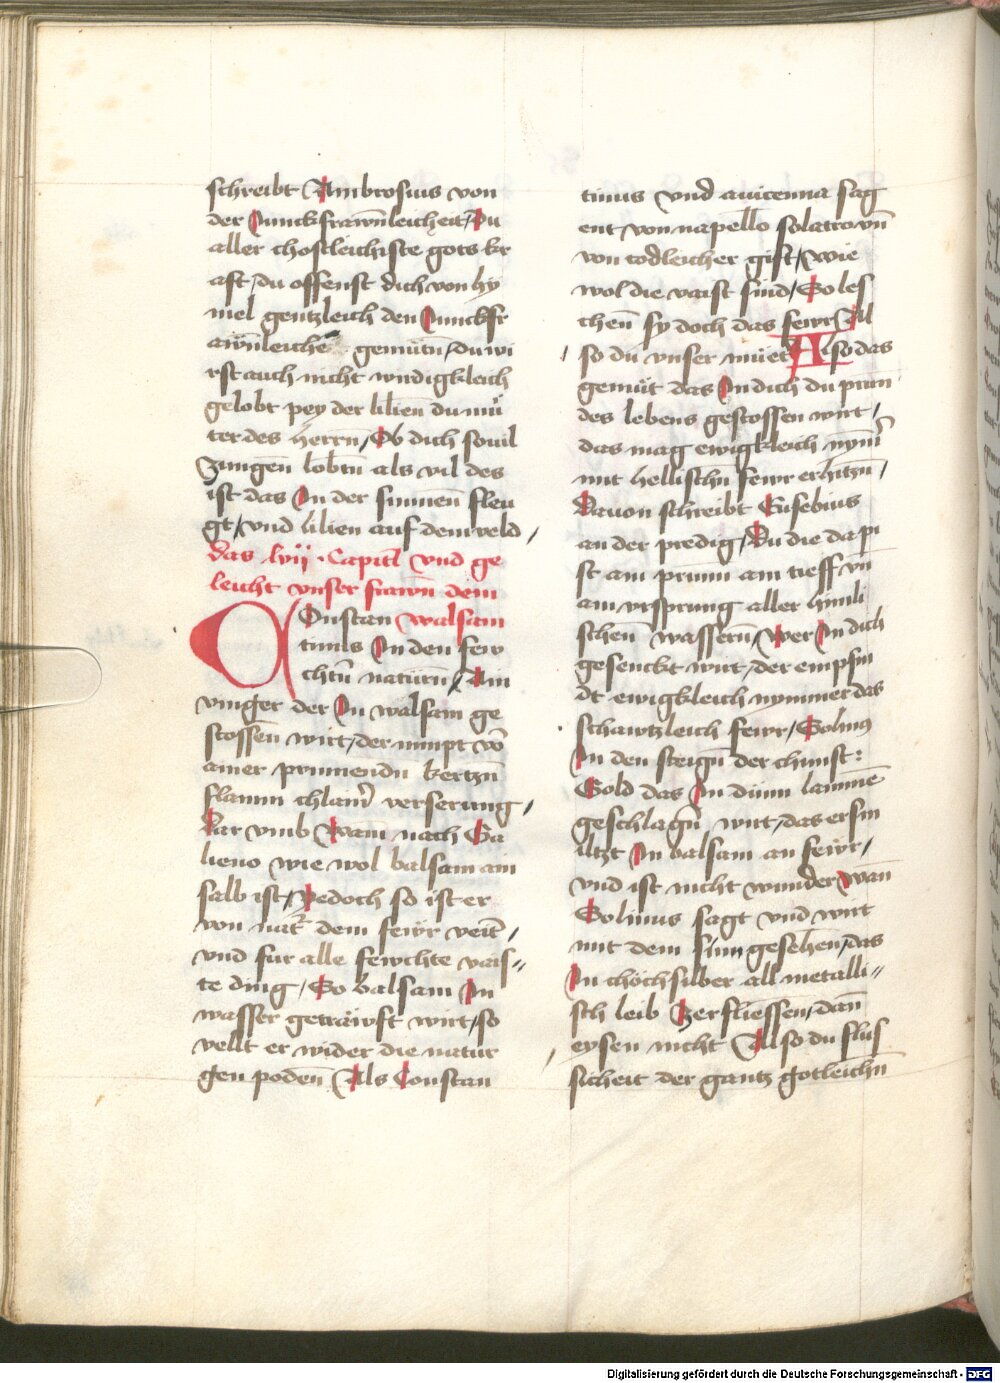 schreibt Ambrosius von
der Junckfrawnleicheit / Du
aller chostleichiste gots kr
aft / du offenst dich von hy
mel gentzleich den Junckfr
awnleiche gemütn̄ / du wi
rst auch nicht wirdigkleich
gelobt pey der lilien du mu
ter des herrn̄ / Ob dich souil
zungen̄ lobtn̄ als vil des
ist das In der sunnen̄ fleu
gt / vnd lilien auf dem veld /
das lvij · Capitl vnd ge
leicht vnser frawn dem
Onstan walsam
tinus In den few
chtn̄ naturn̄ / Ain
vinger der In walsam ge
stossen̄ wirt / der nimpt vō
ainer prinnendn̄ kertzn̄
flamm chlainē verserung /
Dar vmb Wann̄ nach Ga
lieno wie wol balsam ain
salb ist / yedoch so ist er
von natr̄ dem fewr veīt /
vnd für alle fewchte vais //
te ding / So balsam In
wasser geträwft wirt / so
vellt er wider die natur
gen poden̄ Als Constan
tinus vnd auicenna sag
ent von napello solatro vn̄
von todleicher gift / wie
wol die vaist sind / So les
chen̄ sy doch das fewr Al
so du vnser müet Also das
gemüt das In dich du prun
des lebens gestossen wirt /
das mag ewigkleich nymē
mit hellischn̄ fewr erhitzn̄ /
Dauon schreibt Eusebius
an der predig / Du die da pi
st am prunn am tieff vn̄
am vrsprung aller himli
schen̄ wassern̄ / Wer In dich
gesenckt wirt / der empfin
dt ewigkleich nymmer das
schawtzleich fewr / Solinus
In den steign̄ der chunst :
Gold das In dünn lamme
geschlagn̄ wirt / das ersin
iltzt In balsam an fewr /
vnd ist nicht wunder wan
Solinus sagt vnd wirt
mit dem sinn gesehen / das
In chöchsilber all metalli //
sch leib Zerfliessen / dan̄
eysen nicht Also du flus
sicheit der gantz gotleichn̄
Digitalisierung gefördert durch die Deutsche Forschungsgemeinschaft - DFG